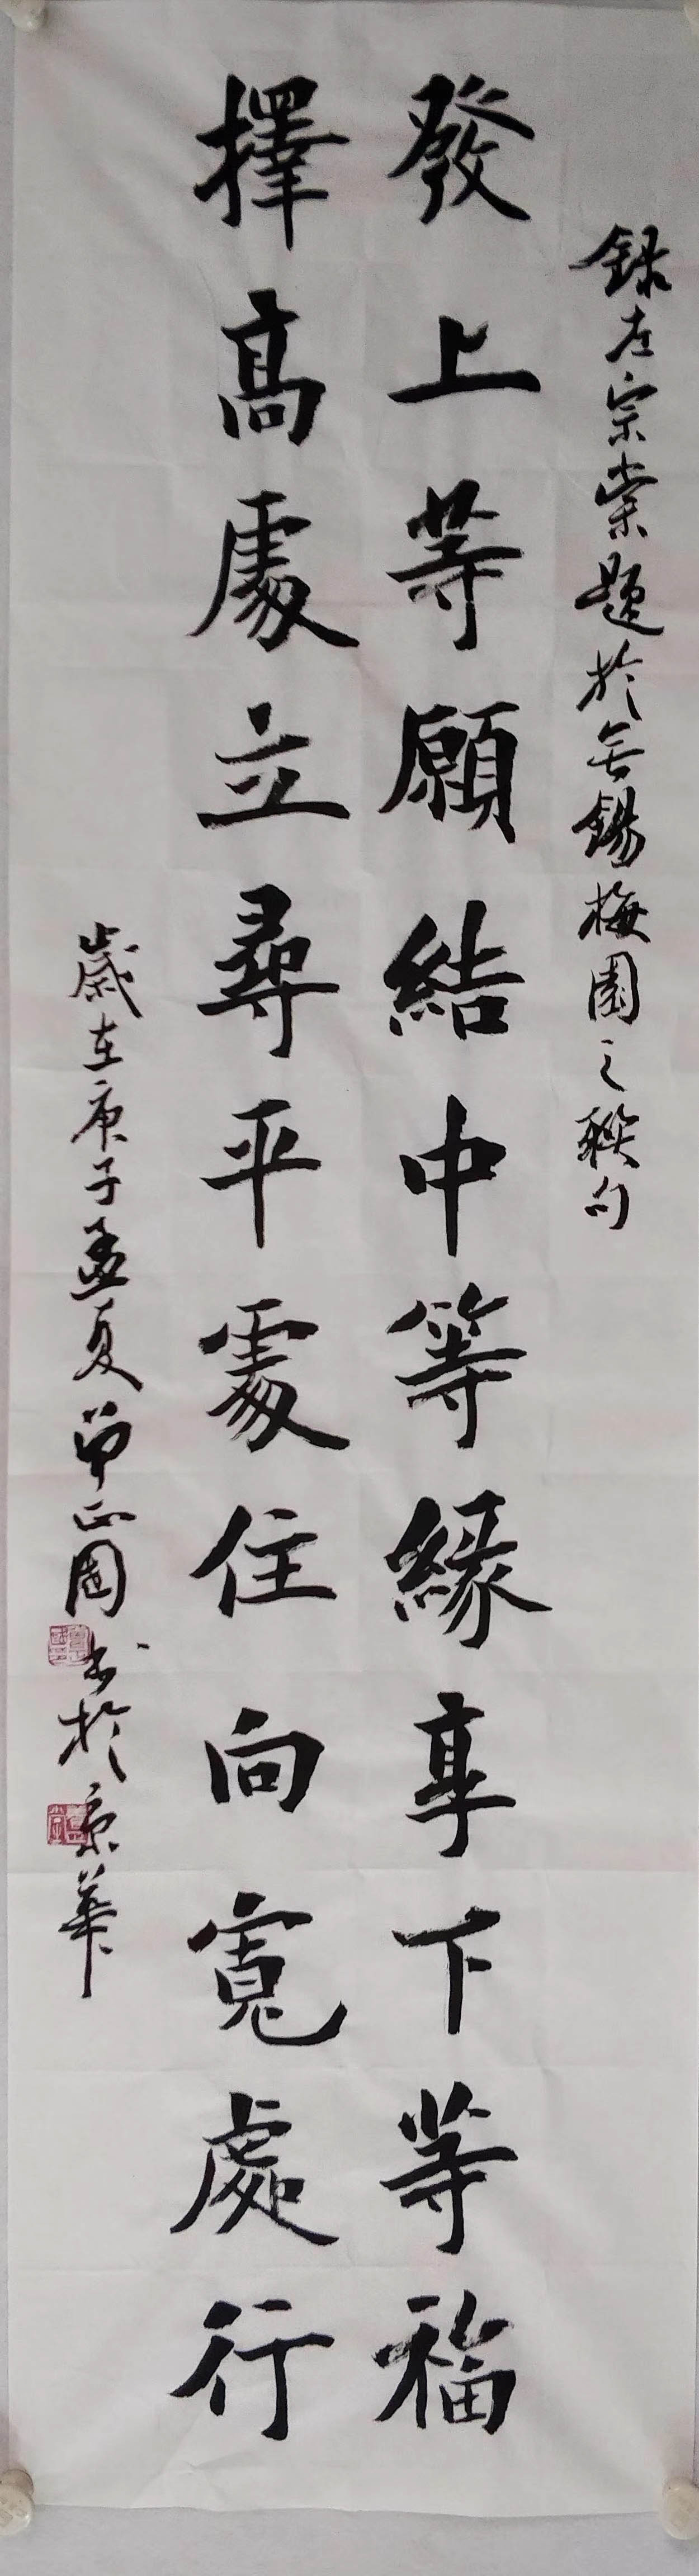 錄左宗棠題於無錫梅園之聯句
發上等願結中等緣享下等福
擇高處立尋平處住向寬處行
歲在庚子孟夏曾正國書於京華